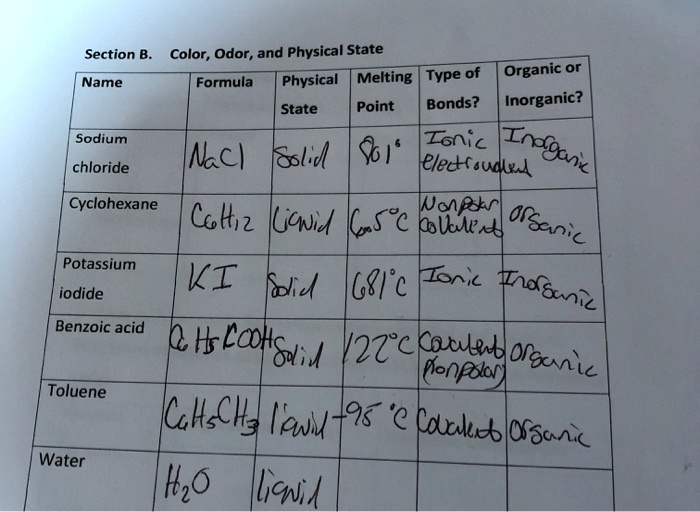 Section B. Color, Odor, and Physical State
Name Formula Physical State Melting Point Type of Bonds? Organic or Inorganic?
Sodium chloride NaCl Solid 801° Ionic electrovalent Inorganic
Cyclohexane C6H12 liquid 6.5°C Nonpolar Covalent organic
Potassium iodide KI Solid 681°C Ionic Inorganic
Benzoic acid C6H5COOH Solid 122°C Covalent (Nonpolar) organic
Toluene C6H5CH3 liquid -95°C Covalent Organic
Water H2O liquid